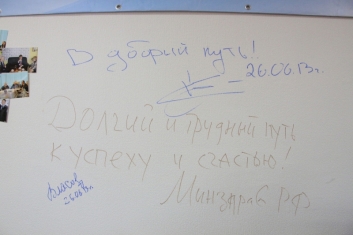 В добрый путь!
26.06.13г.
Долгий и трудный путь
к успеху и счастью!
Минздрав РФ
Власов
26.06.13г.